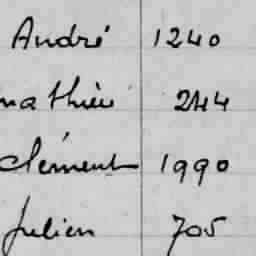 André 1240
mathieu 244
Clément 1990
Julien 705